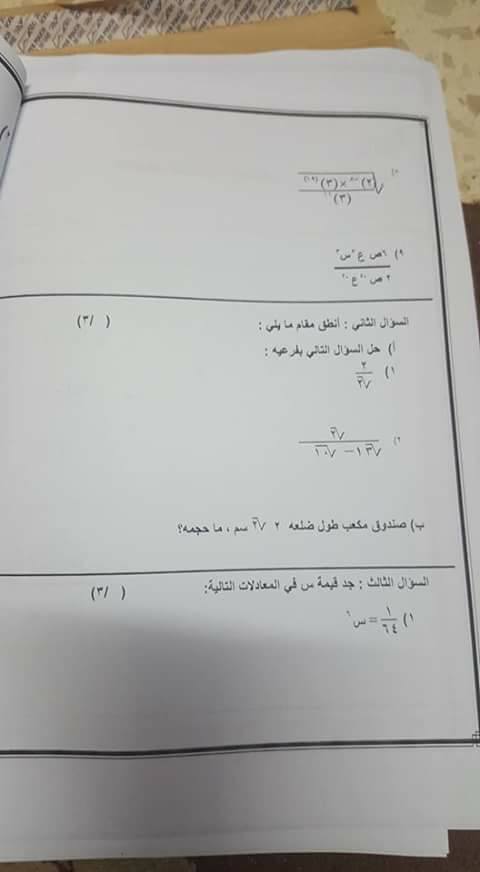 ٩) ٦ص ع س
٢ ص ع
السؤال الثاني : أنطق مقام ما يلي : ( /٣)
أ) حل السؤال التالي بفرعيه :
١) ٢/√٢
٢) √٢ / (√١٣ - √١٠)
ب) صندوق مكعب طول ضلعه ٢ √٢ سم ، ما حجمه؟
السؤال الثالث : جد قيمة س في المعادلات التالية: ( /٣)
١) ١/٦٤ = س^٦